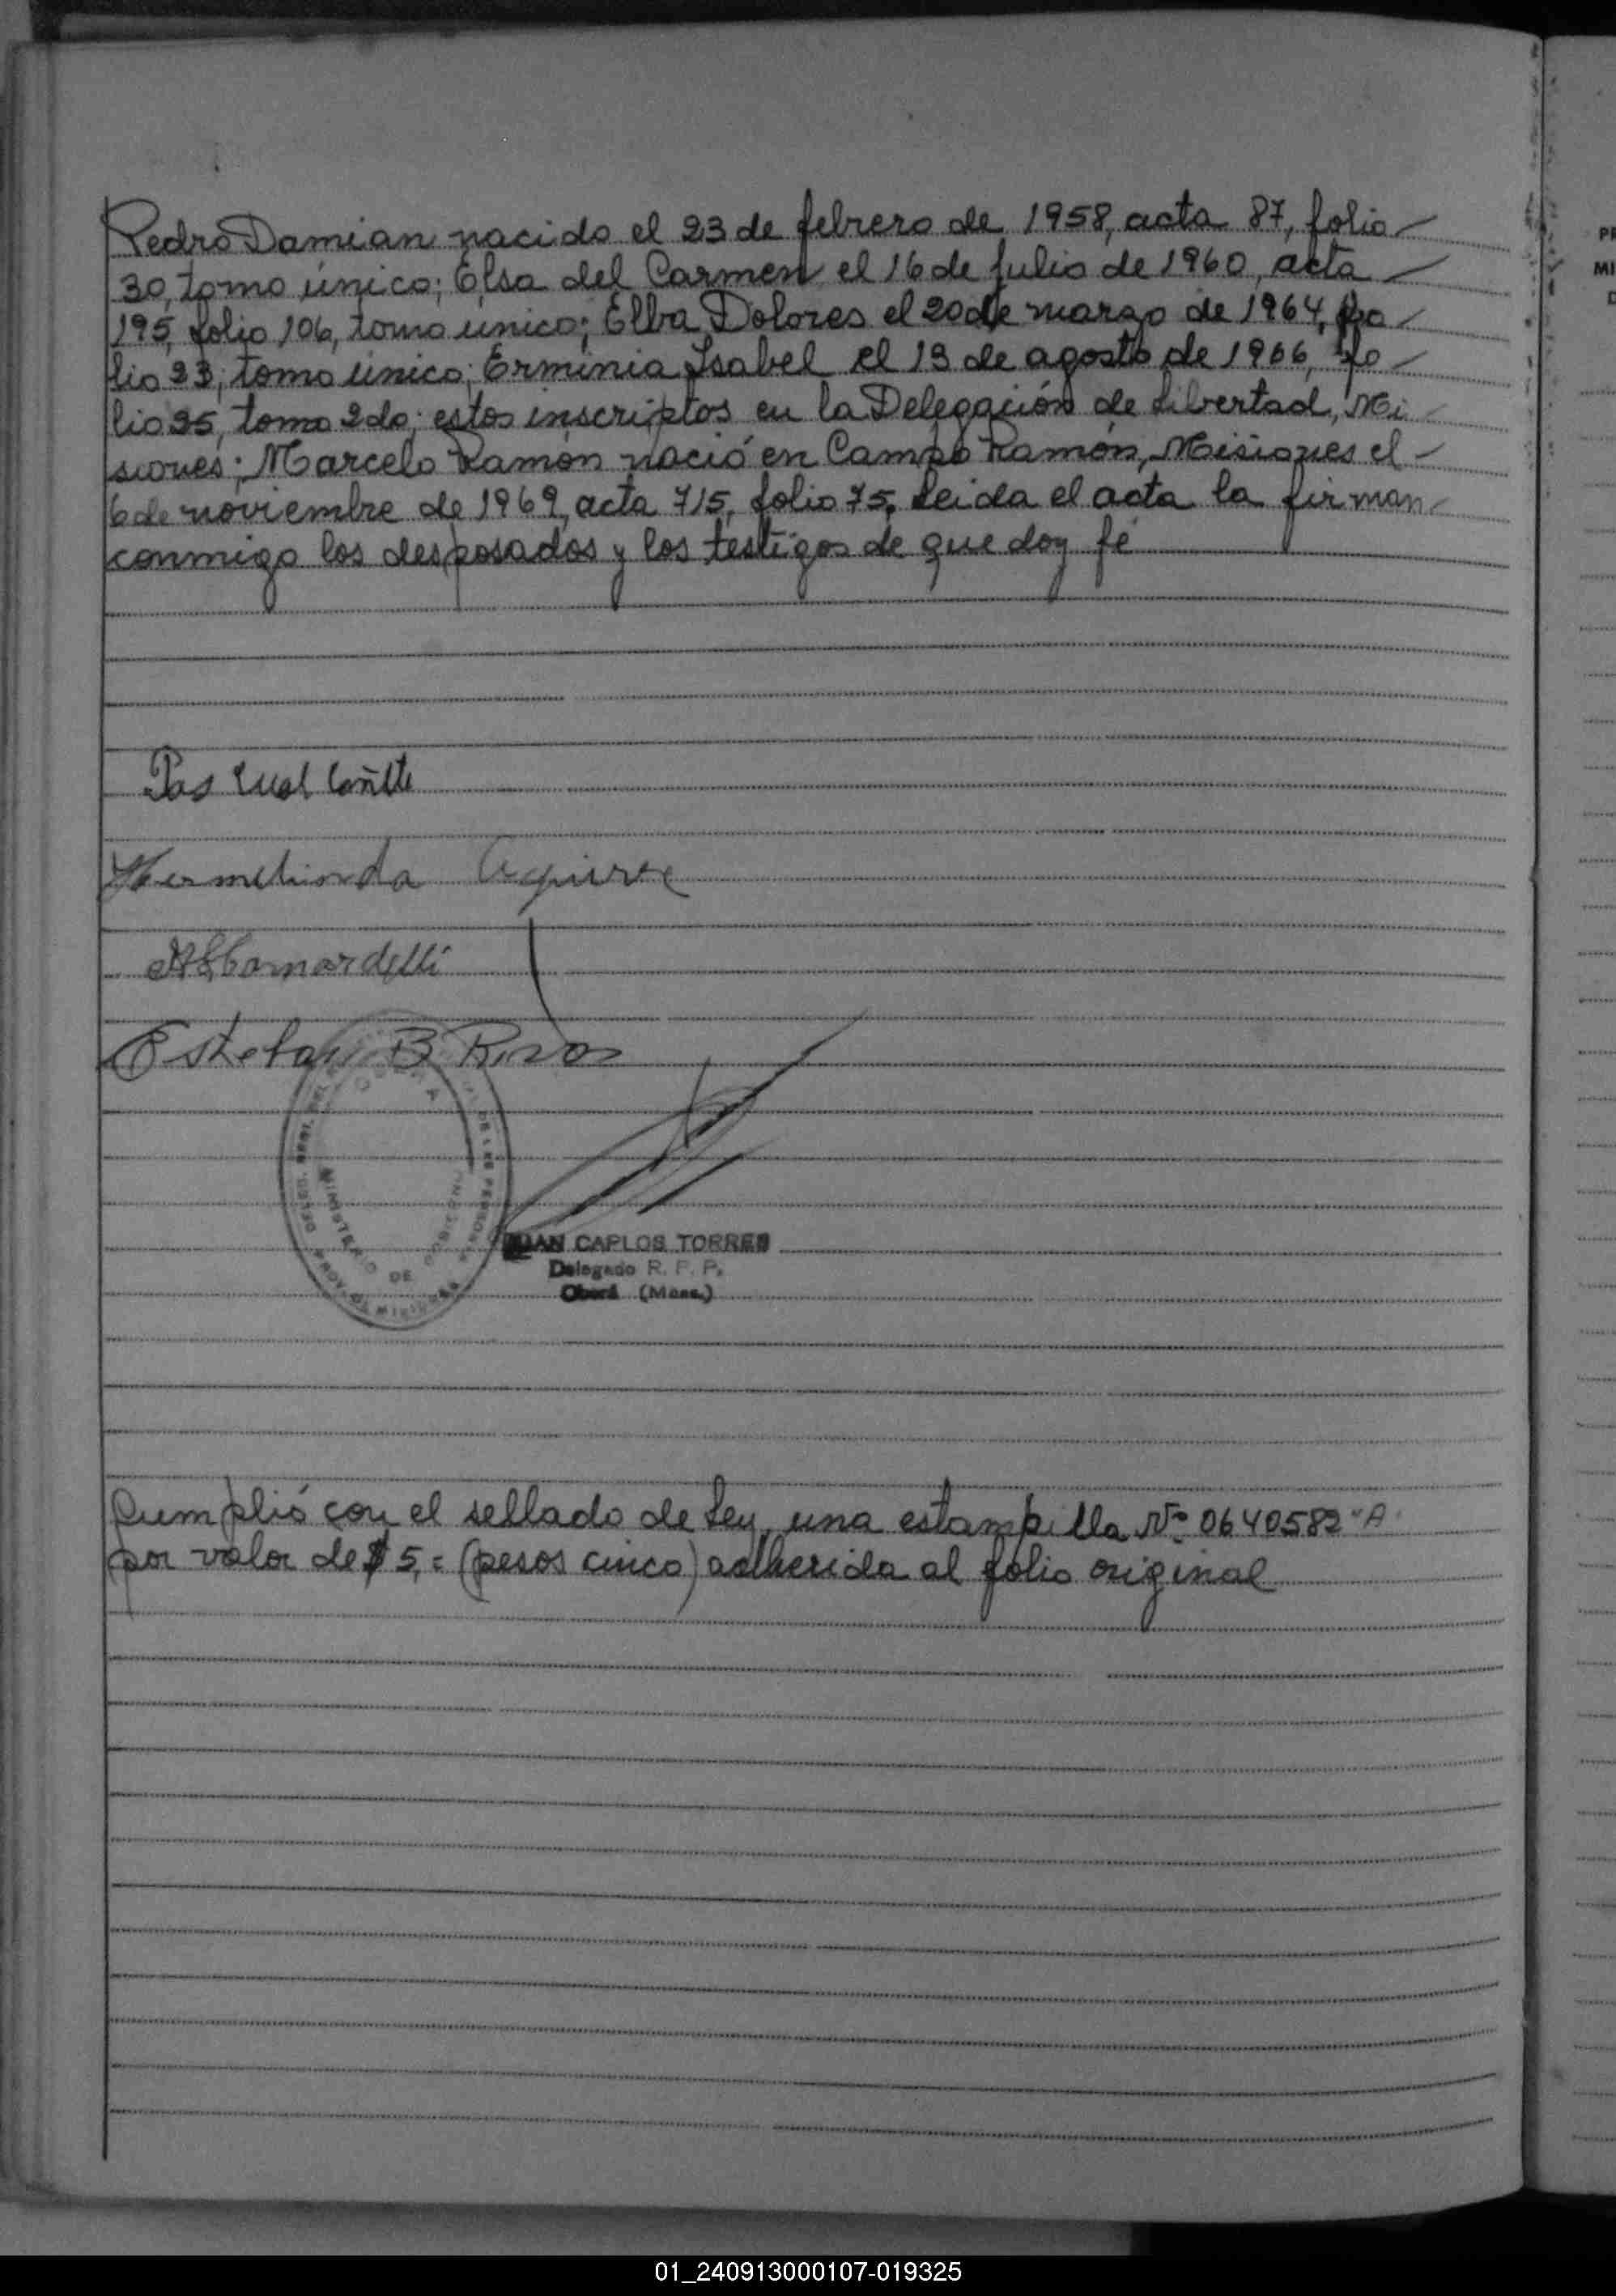 Pedro Damian nacido el 23 de febrero de 1958, acta 87, folio
30, tomo único; Elsa del Carmen el 16 de Julio de 1960, acta
195, folio 106, tomo único; Elba Dolores el 20 de marzo de 1964, fo
lio 23; tomo único; Erminia Isabel el 13 de agosto de 1966, fo
lio 35, tomo 2do; estos inscriptos en la Delegación de Libertad, Mi
siones; Marcelo Ramón nació en Campo Ramón, Misiones el
6 de noviembre de 1969, acta 715, folio 75. Leida el acta la firman
conmigo los desposados y los testigos de que doy fé
Hermelinda Aguirre
Esteban B
MINISTERIO DE GOBIERNO
JUAN CARLOS TORRES
Delegado R. P. P.
Oberá (Mnes.)
Cumplió con el sellado de Ley, una estampilla Nº 0640582 "A"
por valor de $ 5,= (pesos cinco) adherida al folio original
01_240913000107-019325